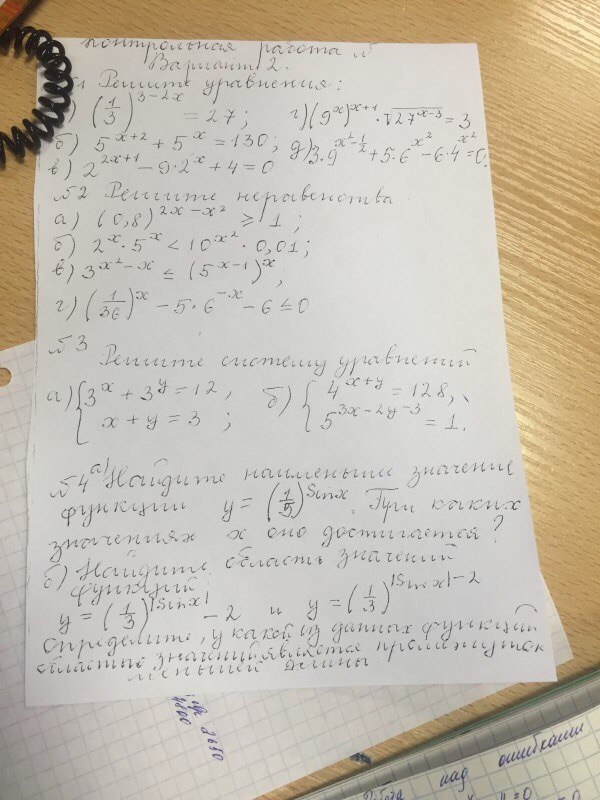 контрольная работа №
Вариант 2.
№1 Решите уравнения:
а) (1/3)^(3-2x) = 27; г) (9^x)^(x+1) · √(27^(x-3)) = 3
б) 5^(x+2) + 5^x = 130; д) 3·9^(x²-1/2) + 5·6^(x²) - 6·4^(x²) = 0.
в) 2^(2x+1) - 9·2^x + 4 = 0
№2 Решите неравенства
а) (0,8)^(2x-x²) ≥ 1;
б) 2^x · 5^x < 10^(x²) · 0,01;
в) 3^(x²-x) ≤ (5^(x-1))^x;
г) (1/36)^x - 5·6^(-x) - 6 ≤ 0
№3
Решите систему уравнений
а) { 3^x + 3^y = 12, б) { 4^(x+y) = 128,
x + y = 3; 5^(3x-2y-3) = 1.
№4 а) Найдите наименьшее значение
функции y = (1/5)^(Sinx). При каких
значениях x оно достигается?
б) Найдите область значений
функций
y = (1/3)^|Sinx| - 2 и y = (1/3)^(|Sinx|-2)
Определите, у какой из данных функций
областью значений является промежуток
меньшей длины.
над ошибками